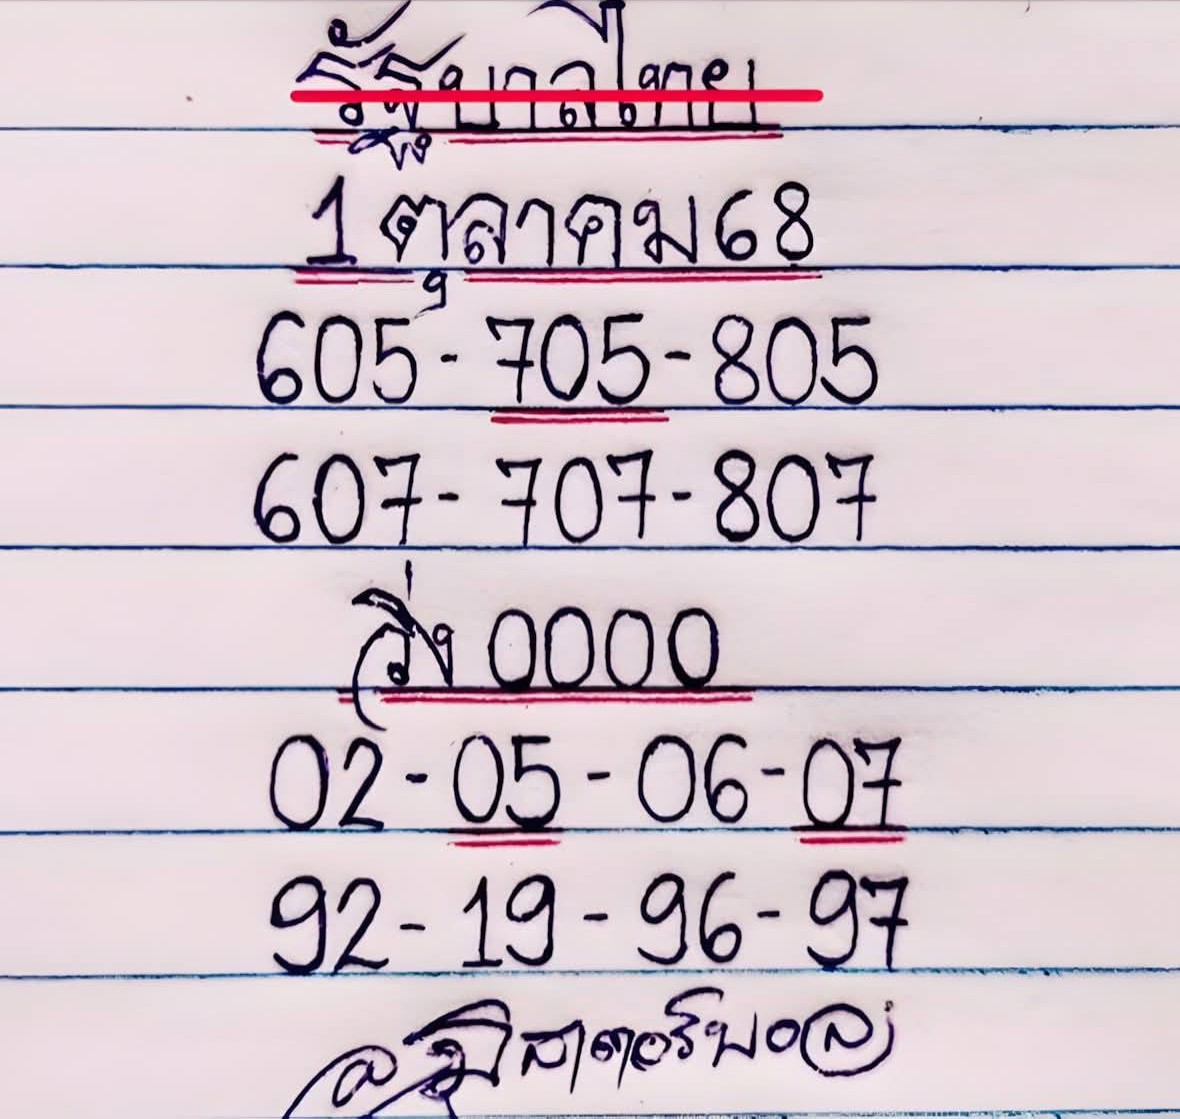 รัฐบาลไทย
1 ตุลาคม 68
605 - 705 - 805
607 - 707 - 807
วิ่ง 0000
02 - 05 - 06 - 07
92 - 19 - 96 - 97